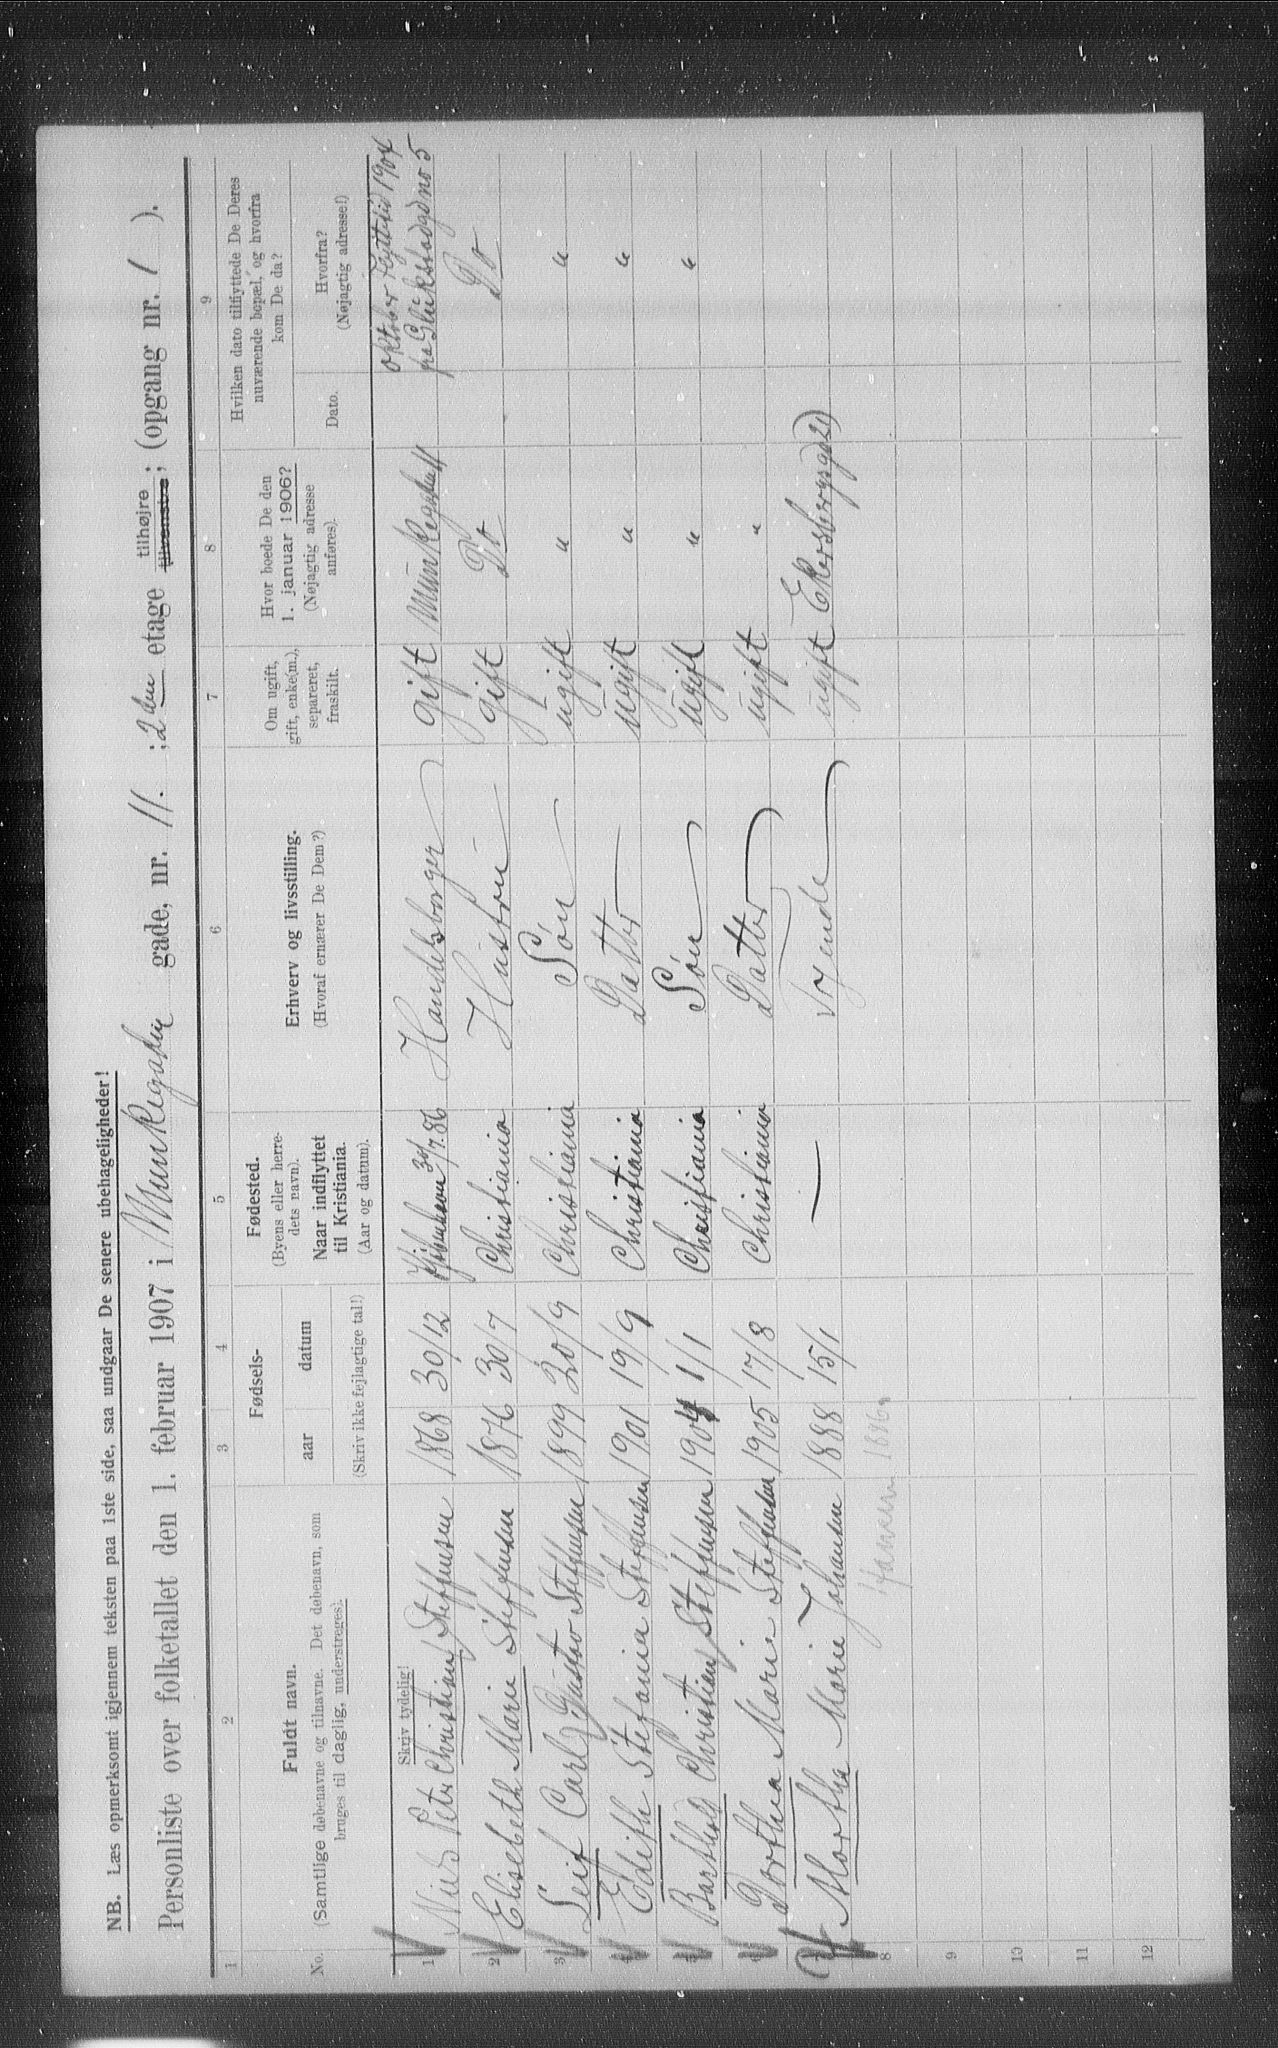 NB. Læs opmerksomt igjennem teksten paa 1ste side, saa undgaar De senere ubehageligheder!
Personliste over folketallet den 1. februar 1907 i Munkegaden gade, nr. 11. ; 2den etage tilhøjre ; tilvenstre ; (opgang nr. 1 ).
1 2 3 4 5 6 7 8 9
No.
Fuldt navn.
(Samtlige døbenavne og tilnavne. Det døbenavn, som
bruges til daglig, understreges).
Fødsels-
aar datum
(Skriv ikke fejlagtige tal!)
Fødested.
(Byens eller herre-
dets navn).
Naar indflyttet
til Kristiania.
(Aar og datum).
Erhverv og livsstilling.
(Hvoraf ernærer De Dem?)
Om ugift,
gift, enke(m.),
separeret,
fraskilt.
Hvor boede De den
1. januar 1906?
(Nøjagtig adresse
anføres).
Hvilken dato tilflyttede De Deres
nuværende bopæl, og hvorfra
kom De da?
Dato.
Hvorfra?
(Nøjagtig adresse!)
Skriv tydelig!
oktober 1904
fra no 5
1 Niels Peter Christian Steffensen 1868 30/12 Handelsborger gift
2 Elisebeth Marie Steffensen 1876 30/7 Christiania Hustru gift Do Do
3 Leif Carl Gustav Steffensen 1899 20/9 Christiania Søn ugift " "
4 Edith Stefania Steffensen 1901 19/9 Christiania Datter ugift " "
5 Barthold Christian Steffensen 1904 1/1 Christiania Søn ugift " "
6 Dorthea Marie Steffensen 1905 17/8 Christiania Datter ugift "
7 Martha Marie Johansen 1888 15/1 — ugift
8
9
10
11
12